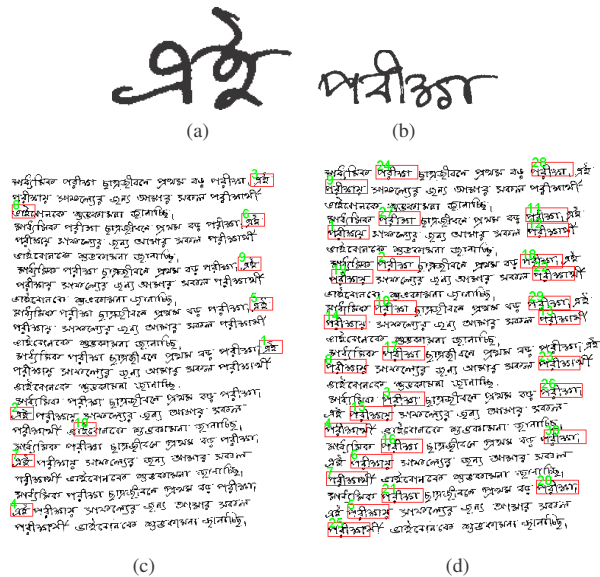 এই
পরীক্ষা
(a)
(b)
মাধ্যমিক পরীক্ষা ছাত্রজীবনে প্রথম বড় পরীক্ষা, এই
পরীক্ষায় সাফল্যের জন্য আমার সকল পরীক্ষার্থী
ভাইবোনকে শুভকামনা জানাচ্ছি।
মাধ্যমিক পরীক্ষা ছাত্রজীবনে প্রথম বড় পরীক্ষা, এই
পরীক্ষায় সাফল্যের জন্য আমার সকল পরীক্ষার্থী
ভাইবোনকে শুভকামনা জানাচ্ছি।
মাধ্যমিক পরীক্ষা ছাত্রজীবনে প্রথম বড় পরীক্ষা, এই
পরীক্ষায় সাফল্যের জন্য আমার সকল পরীক্ষার্থী
ভাইবোনকে শুভকামনা জানাচ্ছি।
মাধ্যমিক পরীক্ষা ছাত্রজীবনে প্রথম বড় পরীক্ষা, এই
পরীক্ষায় সাফল্যের জন্য আমার সকল পরীক্ষার্থী
ভাইবোনকে শুভকামনা জানাচ্ছি।
মাধ্যমিক পরীক্ষা ছাত্রজীবনে প্রথম বড় পরীক্ষা, এই
পরীক্ষায় সাফল্যের জন্য আমার সকল পরীক্ষার্থী
ভাইবোনকে শুভকামনা জানাচ্ছি।
মাধ্যমিক পরীক্ষা ছাত্রজীবনে প্রথম বড় পরীক্ষা,
এই পরীক্ষায় সাফল্যের জন্য আমার সকল
পরীক্ষার্থী ভাইবোনকে শুভকামনা জানাচ্ছি।
মাধ্যমিক পরীক্ষা ছাত্রজীবনে প্রথম বড় পরীক্ষা,
এই পরীক্ষায় সাফল্যের জন্য আমার সকল
পরীক্ষার্থী ভাইবোনকে শুভকামনা জানাচ্ছি।
মাধ্যমিক পরীক্ষা ছাত্রজীবনে প্রথম বড় পরীক্ষা,
এই পরীক্ষায় সাফল্যের জন্য আমার সকল
পরীক্ষার্থী ভাইবোনকে শুভকামনা জানাচ্ছি।
(c)
মাধ্যমিক পরীক্ষা ছাত্রজীবনে প্রথম বড় পরীক্ষা, এই
পরীক্ষায় সাফল্যের জন্য আমার সকল পরীক্ষার্থী
ভাইবোনকে শুভকামনা জানাচ্ছি।
মাধ্যমিক পরীক্ষা ছাত্রজীবনে প্রথম বড় পরীক্ষা, এই
পরীক্ষায় সাফল্যের জন্য আমার সকল পরীক্ষার্থী
ভাইবোনকে শুভকামনা জানাচ্ছি।
মাধ্যমিক পরীক্ষা ছাত্রজীবনে প্রথম বড় পরীক্ষা, এই
পরীক্ষায় সাফল্যের জন্য আমার সকল পরীক্ষার্থী
ভাইবোনকে শুভকামনা জানাচ্ছি।
মাধ্যমিক পরীক্ষা ছাত্রজীবনে প্রথম বড় পরীক্ষা, এই
পরীক্ষায় সাফল্যের জন্য আমার সকল পরীক্ষার্থী
ভাইবোনকে শুভকামনা জানাচ্ছি।
মাধ্যমিক পরীক্ষা ছাত্রজীবনে প্রথম বড় পরীক্ষা, এই
পরীক্ষায় সাফল্যের জন্য আমার সকল পরীক্ষার্থী
ভাইবোনকে শুভকামনা জানাচ্ছি।
মাধ্যমিক পরীক্ষা ছাত্রজীবনে প্রথম বড় পরীক্ষা,
এই পরীক্ষায় সাফল্যের জন্য আমার সকল
পরীক্ষার্থী ভাইবোনকে শুভকামনা জানাচ্ছি।
মাধ্যমিক পরীক্ষা ছাত্রজীবনে প্রথম বড় পরীক্ষা,
এই পরীক্ষায় সাফল্যের জন্য আমার সকল
পরীক্ষার্থী ভাইবোনকে শুভকামনা জানাচ্ছি।
মাধ্যমিক পরীক্ষা ছাত্রজীবনে প্রথম বড় পরীক্ষা,
এই পরীক্ষায় সাফল্যের জন্য আমার সকল
পরীক্ষার্থী ভাইবোনকে শুভকামনা জানাচ্ছি।
(d)